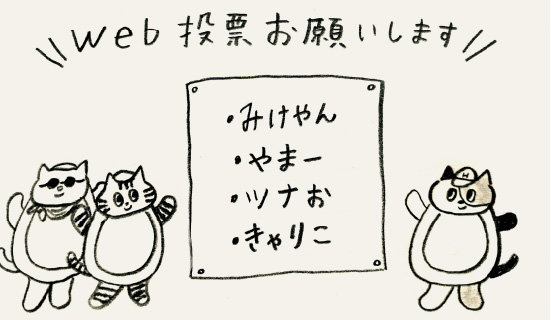 \\Web投票お願いします//
・みけやん
・やまー
・ツナお
・きゃりこ
H